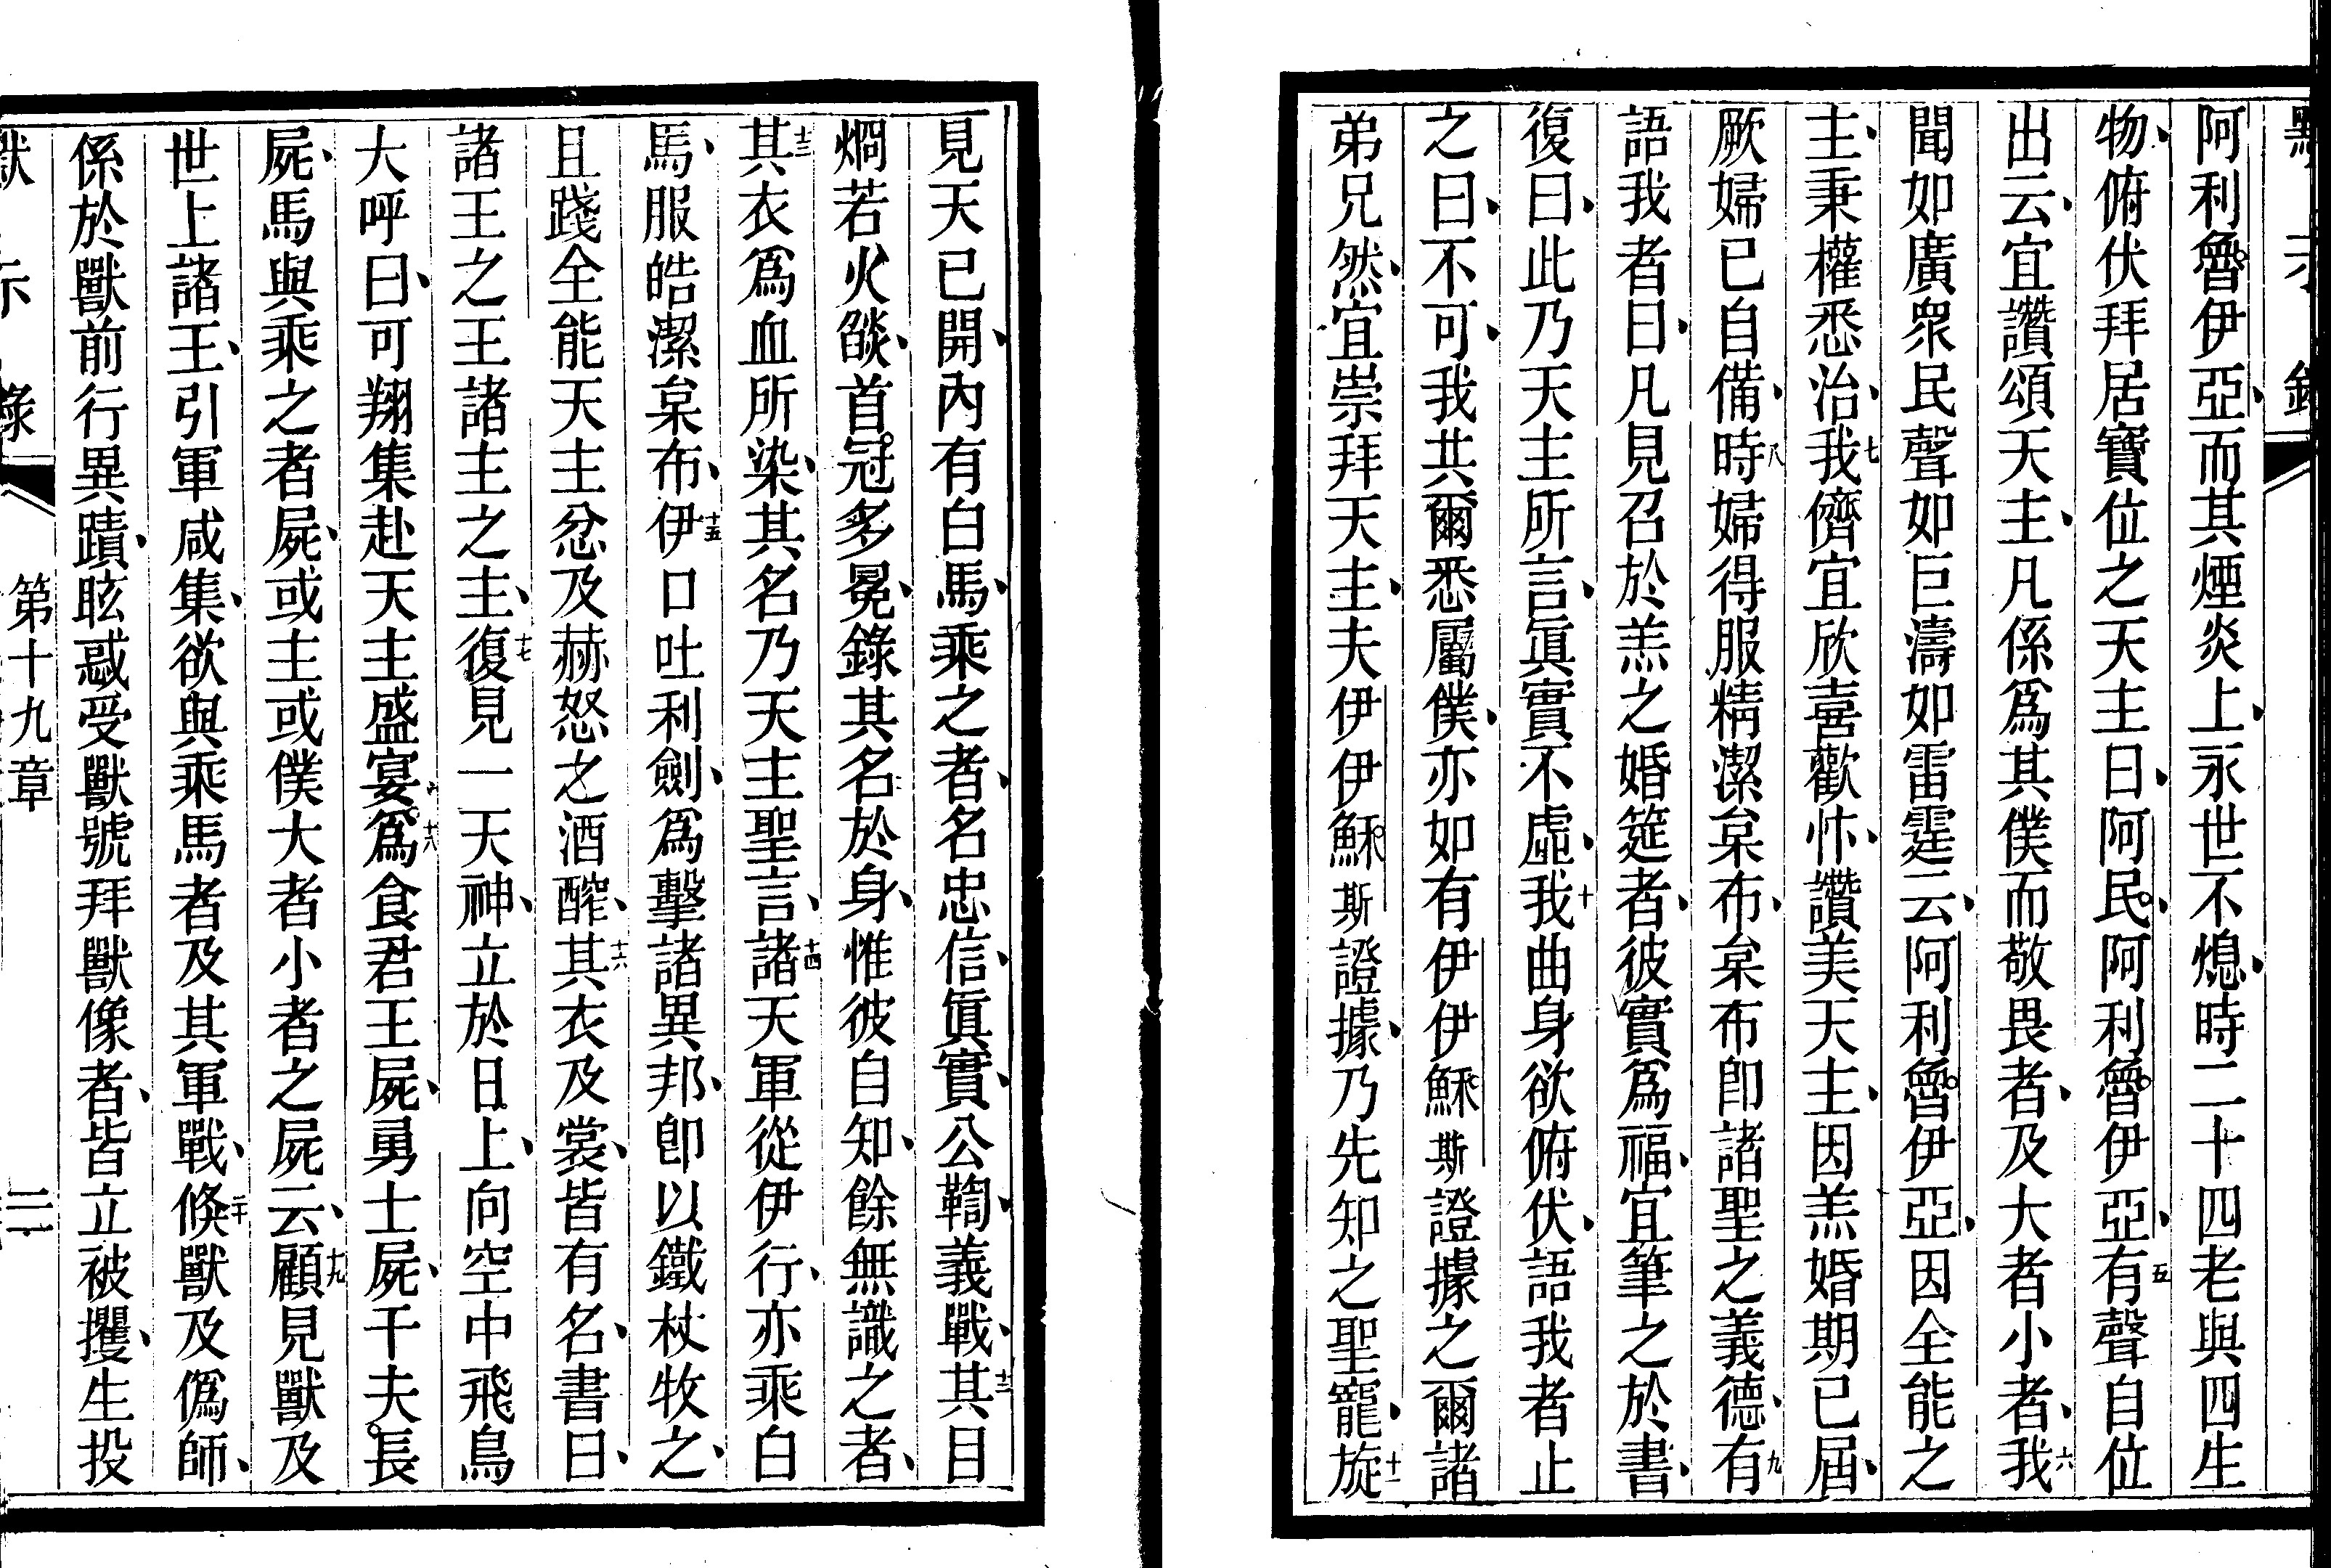 阿利魯伊亞、而其煙炎上、永世不熄、時二十四老與四生
物、俯伏拜居寶位之天主曰、阿民、阿利魯伊亞、五有聲自位
出云、宜讚頌天主、凡係爲其僕而敬畏者、及大者小者、六我
聞如廣衆民聲如巨濤如雷霆云、阿利魯伊亞、因全能之
主、秉權悉治、七我儕宜欣喜歡忭、讚美天主、因羔婚期已屆、
厥婦已自備、八時婦得服精潔枲布、枲布卽諸聖之義德、九有
語我者曰、凡見召於羔之婚筵者、彼實爲福、宜筆之於書、
復曰、此乃天主所言、眞實不虛、十我曲身欲俯伏、語我者止
之曰、不可、我共爾悉屬僕、亦如有伊伊穌斯證據之爾諸
弟兄然、宜崇拜天主、夫伊伊穌斯證據、乃先知之聖寵、十一旋
見天已開、內有白馬、乘之者、名忠信、眞實、公鞫、義戰、十二其目
烱若火燄、首冠多冕、錄其名於身、惟彼自知、餘無識之者、
十三其衣爲血所染、其名乃天主聖言、十四諸天軍從伊行、亦乘白
馬、服皓潔枲布、十五伊口吐利劍、爲擊諸異邦、卽以鐵杖牧之、
且踐全能天主忿及赫怒之酒醡、十六其衣及裳、皆有名、書曰、
諸王之王諸主之主、十七復見一天神、立於日上、向空中飛鳥
大呼曰、可翔集赴天主盛宴、十八爲食君王屍、勇士屍、千夫長
屍、馬與乘之者屍、或主或僕大者小者之屍云、十九顧見獸及
世上諸王、引軍咸集、欲與乘馬者及其軍戰、二十倏獸及僞師、
係於獸前行異蹟、眩惑受獸號拜獸像者、皆立被攫、生投
默示錄 第十九章 二